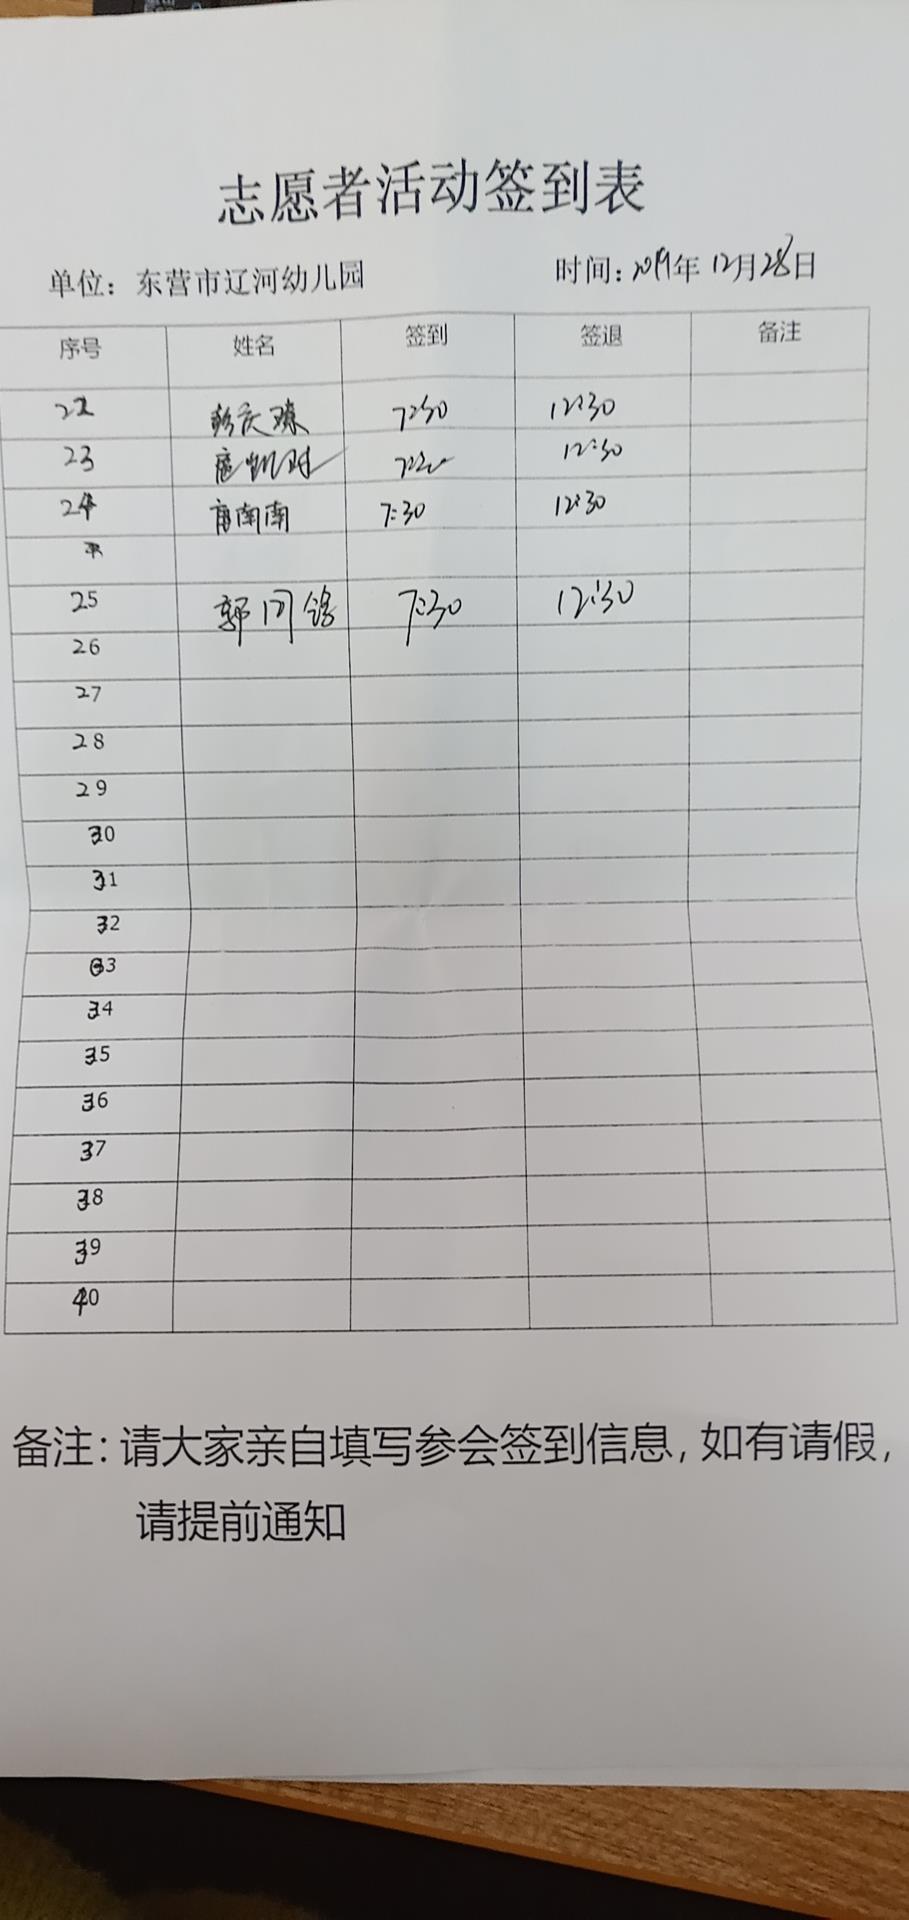 志愿者活动签到表
单位：东营市辽河幼儿园 时间：2019年12月28日
序号 姓名 签到 签退 备注
22 7:30 12:30
23 12:30
24 南南 7:30 12:30
25 郭 7:30 12:30
26
27
28
29
30
31
32
33
34
35
36
37
38
39
40
备注：请大家亲自填写参会签到信息，如有请假，
请提前通知